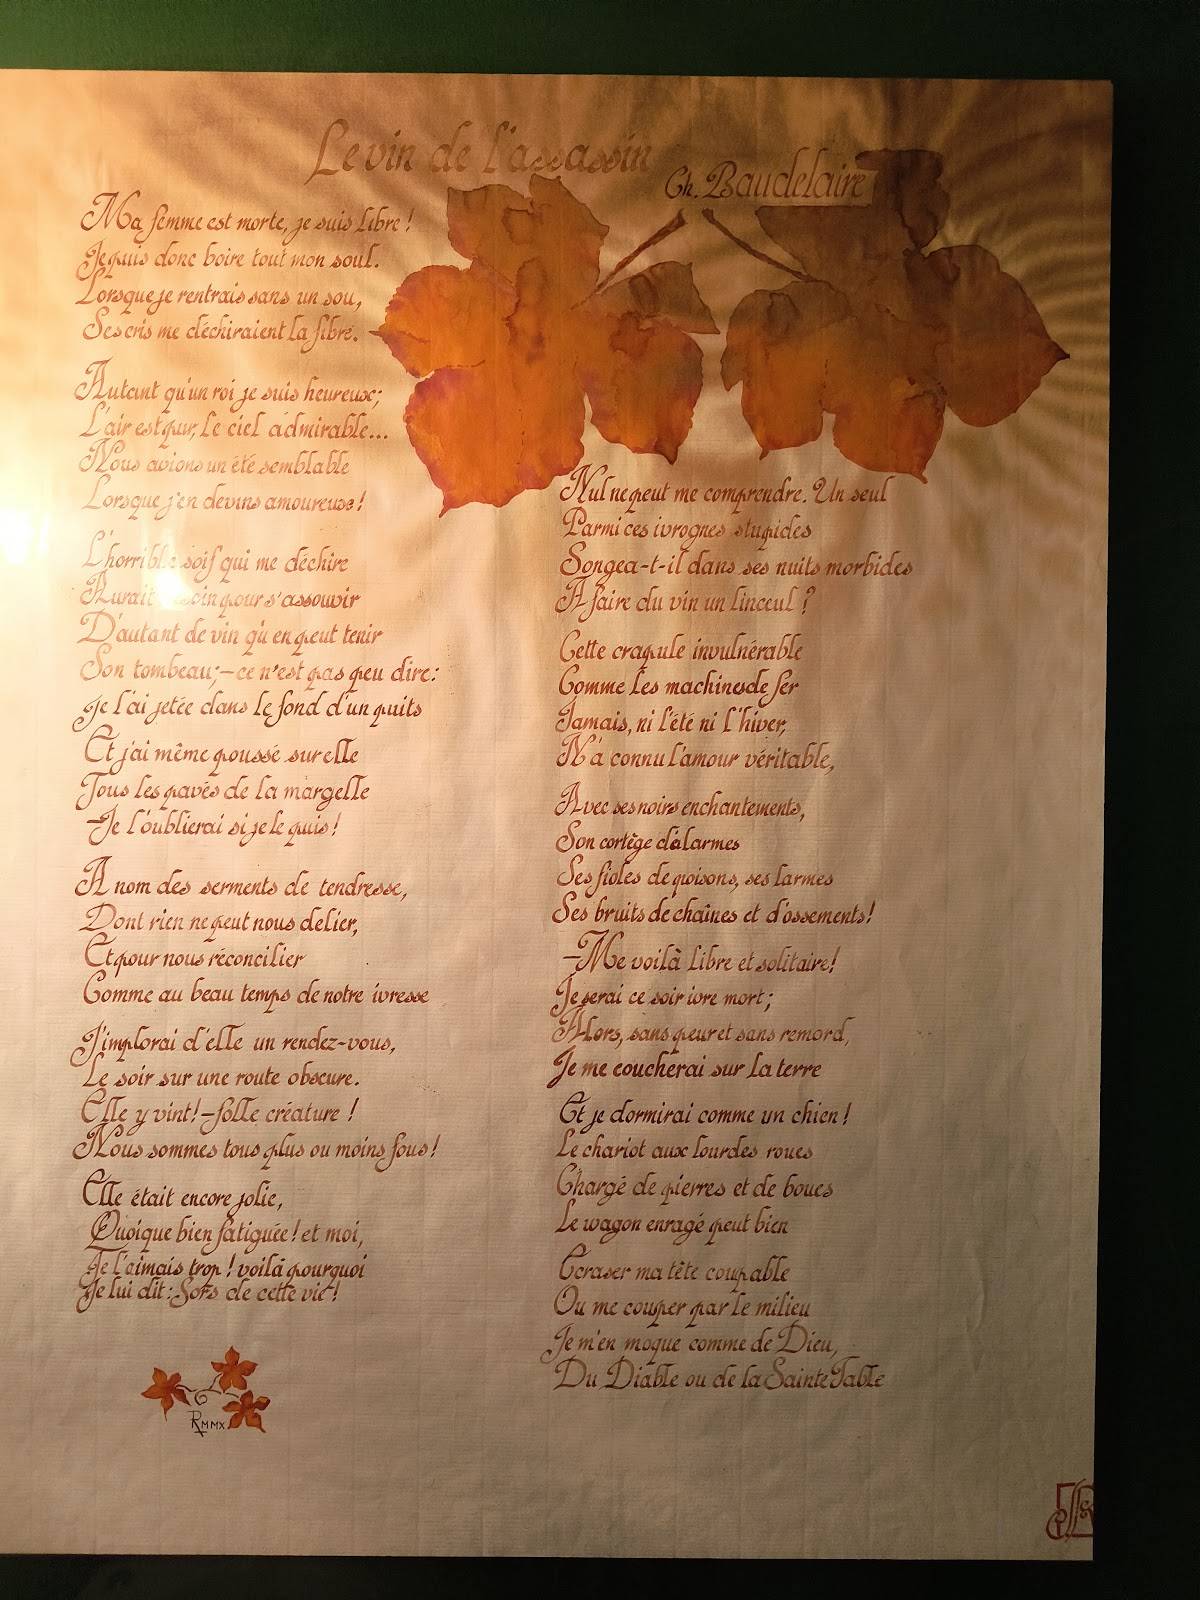 Le vin de l'assassin
Ch. Baudelaire
Ma femme est morte, je suis libre !
Je puis donc boire tout mon soul.
Lorsque je rentrais sans un sou,
Ses cris me déchiraient la fibre.
Autant qu'un roi je suis heureux;
L'air est pur, le ciel admirable...
Nous avions un été semblable
Lorsque j'en devins amoureuse !
L'horrible soif qui me déchire
Aurait besoin pour s'assouvir
D'autant de vin qu'en peut tenir
Son tombeau; – ce n'est pas peu dire:
Je l'ai jetée dans le fond d'un puits
Et j'ai même poussé sur elle
Tous les pavés de la margelle
– Je l'oublierai si je le puis !
A nom des serments de tendresse,
Dont rien ne peut nous delier,
Et pour nous réconcilier
Comme au beau temps de notre ivresse
J'implorai d'elle un rendez-vous,
Le soir sur une route obscure.
Elle y vint! – folle créature !
Nous sommes tous plus ou moins fous !
Elle était encore jolie,
Quoique bien fatiguée ! et moi,
Je l'aimais trop ! voilà pourquoi
Je lui dit : Sors de cette vie !
RMMX
Nul ne peut me comprendre. Un seul
Parmi ces ivrognes stupides
Songea-t-il dans ses nuits morbides
A faire du vin un linceul ?
Cette crapule invulnérable
Comme les machines de fer
Jamais, ni l'été ni l'hiver,
N'a connu l'amour véritable,
Avec ses noirs enchantements,
Son cortège d'alarmes
Ses fioles de poisons, ses larmes
Ses bruits de chaînes et d'ossements !
– Me voilà libre et solitaire !
Je serai ce soir ivre mort ;
Alors, sans peur et sans remord,
Je me coucherai sur la terre
Et je dormirai comme un chien !
Le chariot aux lourdes roues
Chargé de pierres et de boues
Le wagon enragé peut bien
Ecraser ma tête coupable
Ou me couper par le milieu
Je m'en moque comme de Dieu,
Du Diable ou de la Sainte Table